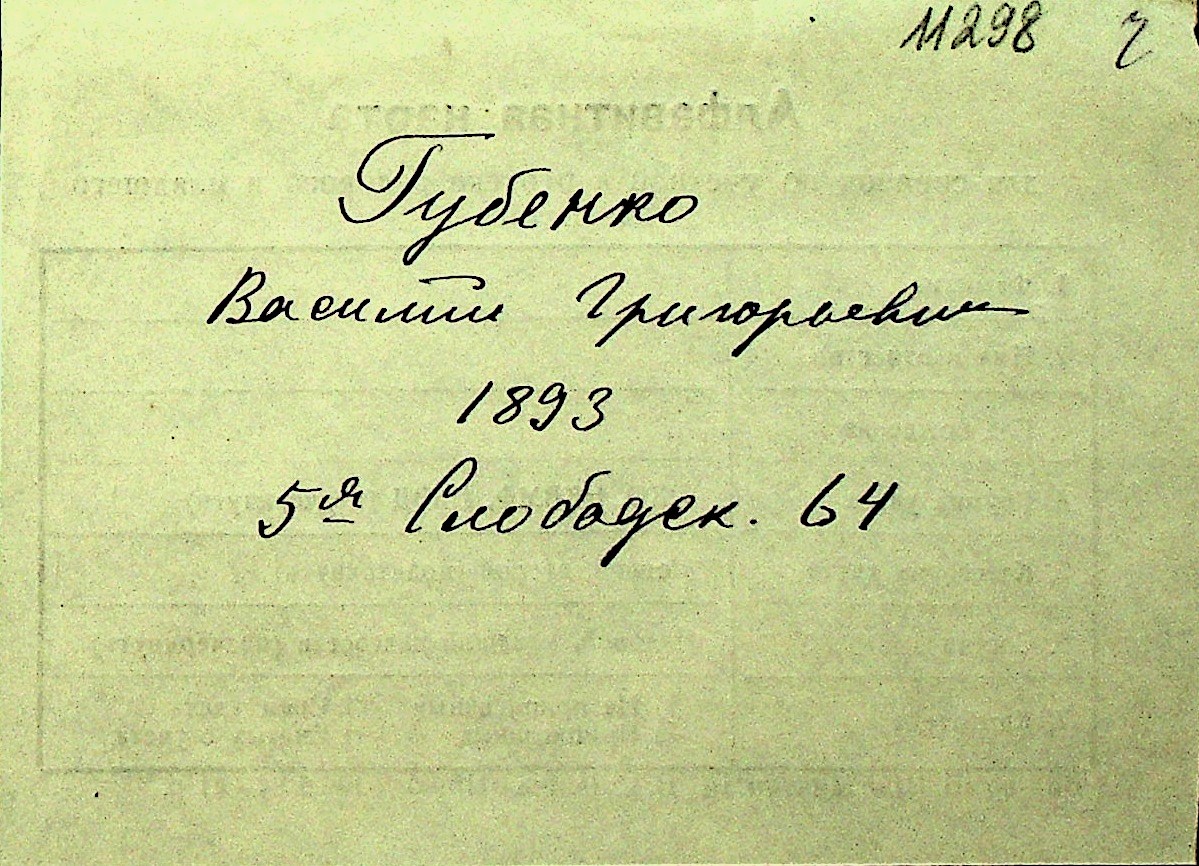 11298 г
Губенко
Василий Григорьевич
1893
5я Слободск. 64